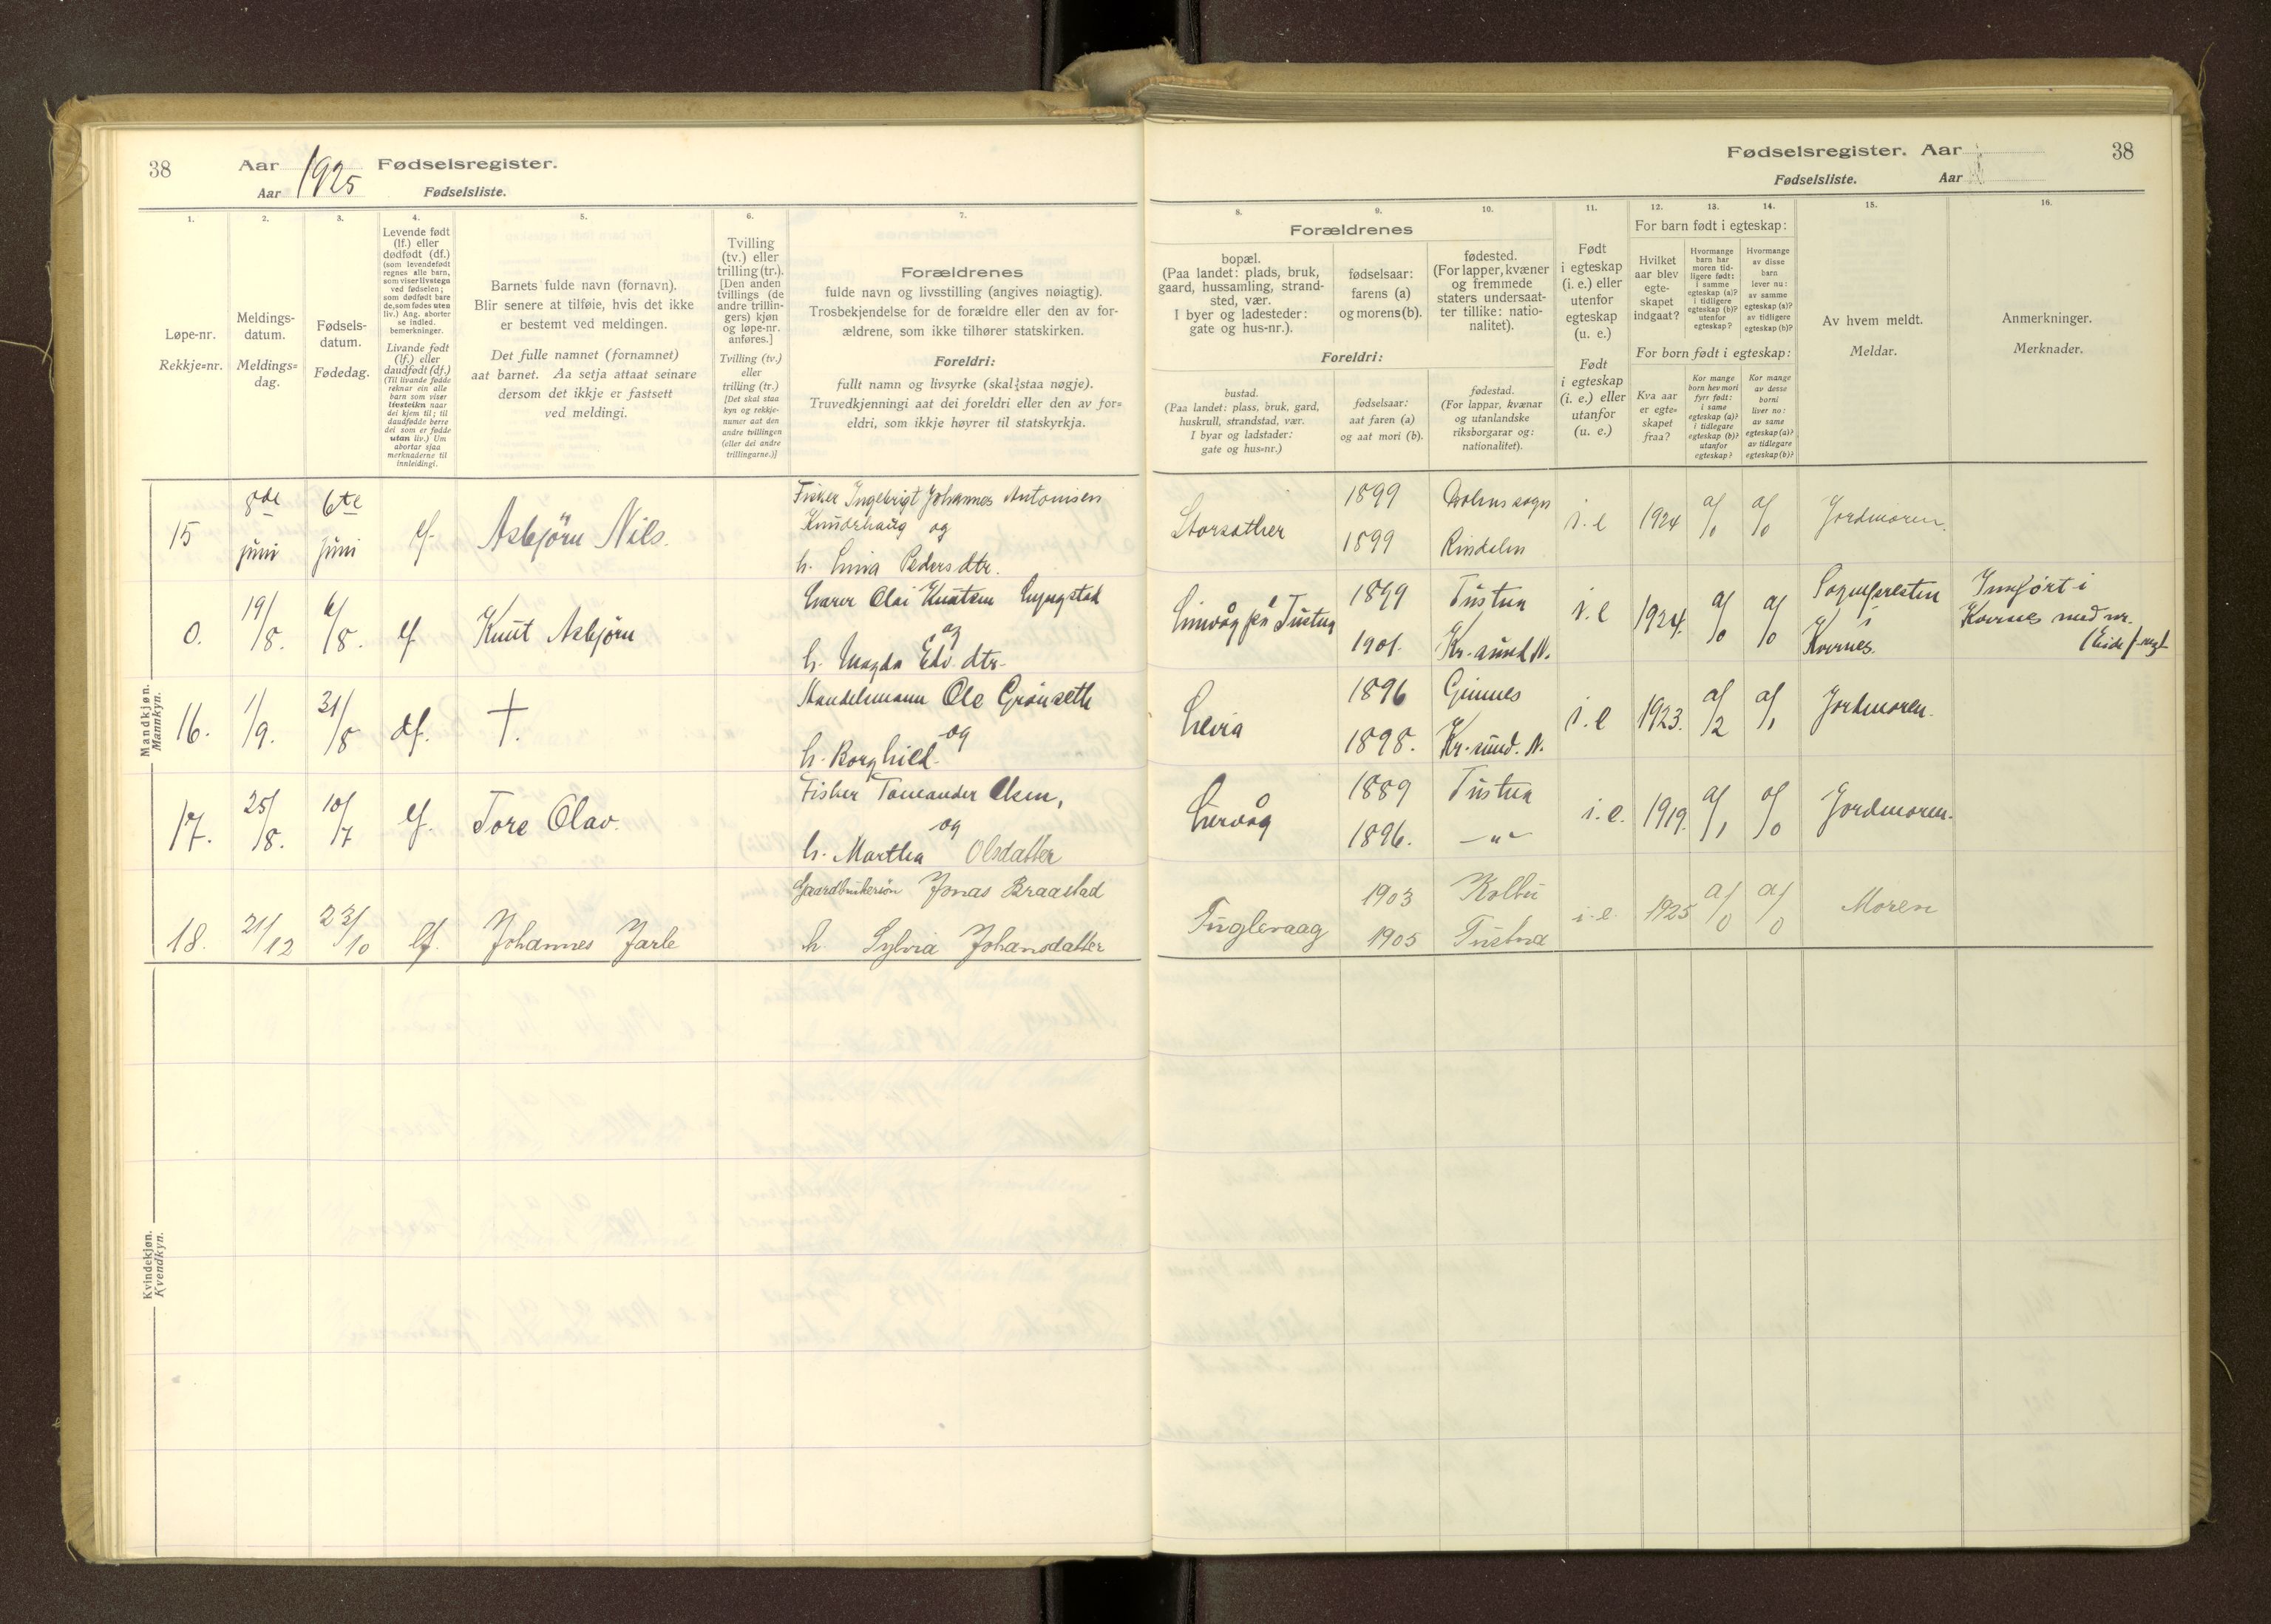 38
Aar 1925 Fødselsregister.
Aar Fødselsliste.
1.
2.
3.
4.
5.
6.
7.
Løpe-nr.
Rekkje=nr.
Meldings-
datum.
Meldings=
dag.
Fødsels-
datum.
Fødedag.
Levende født
(lf.) eller
dødfødt (df.)
(som levendefødt
regnes alle barn,
som viser livstegn
ved fødselen;
som dødfødt bare
de, som fødes uten
liv.) Ang. aborter
se indled.
bemerkninger.
Livande født
(lf.) eller
daudfødt (df.)
(Til livande fødde
reknar ein alle
barn som viser
livsteikn naar
dei kjem til; til
daudfødde berre
dei som er fødde
utan liv.) Um
abortar sjaa
merknaderne til
innleidingi.
Barnets fulde navn (fornavn).
Blir senere at tilføie, hvis det ikke
er bestemt ved meldingen.
Det fulle namnet (fornamnet)
aat barnet. Aa setja attaat seinare
dersom det ikkje er fastsett
ved meldingi.
Tvilling
(tv.) eller
trilling (tr.).
[Den anden
tvillings (de
andre trillin-
gers) kjøn
og løpe-nr.
anføres.]
Tvilling (tv.)
eller
trilling (tr.)
[Det skal staa
kyn og rekkje-
numer aat den
andre tvillingen
(eller dei andre
trillingarne.)]
Forældrenes
fulde navn og livsstilling (angives nøiagtig).
Trosbekjendelse for de forældre eller den av for-
ældrene, som ikke tilhører statskirken.
Foreldri:
fullt namn og livsyrke (skal staa nøgje).
Truvedkjenningi aat dei foreldri eller den av for=
eldri, som ikkje høyrer til statskyrkja.
Mandkjøn.
Mannkyn.
15
8de
juni
6te
juni
lf.
Asbjörn Nils.
Fisker Ingebrigt Johannes Antonisen
Knudshaug og
h. Pedersdtr.
0.
19/8.
6/8.
lf
Knut Asbjörn
Lærer Olai Knutsen Lyngstad
og
h. Magda Edv. dtr.
16.
1/9.
31/8
df.
†.
Handelsmann Ole Grönseth
og
h. Borghild
17.
25/8.
10/7
lf.
Tore Olav.
Fisker Olsen,
og
h. Martha Olsdatter
18.
21/12
23/10
lf.
Johannes Jarle
Gaardbrukersön Jonas Braastad
h. Sylvia Johansdatter
Kvindekjøn.
Kvendkyn.
Fødselsregister. Aar
38
Fødselsliste. Aar
8.
9.
10.
11.
12.
13.
14.
15.
16.
Forældrenes
bopæl.
(Paa landet: plads, bruk,
gaard, hussamling, strand-
sted, vær.
I byer og ladesteder:
gate og hus-nr.).
fødselsaar:
farens (a)
og morens (b).
fødested.
(For lapper, kvæner
og fremmede
staters undersaat-
ter tillike: natio-
nalitet).
Foreldri:
bustad.
(Paa landet: plass, bruk, gard,
huskrull, strandstad, vær.
I byar og ladstader:
gate og hus=nr.)
fødselsaar:
aat faren (a)
og aat mori (b).
fødestad.
(For lappar, kvænar
og utanlandske
riksborgarar og:
nationalitet).
Født
i egteskap
(i. e.) eller
utenfor
egteskap
(u. e.)
Født
i egteskap
(i. e.) eller
utanfor
(u. e.)
For barn født i egteskap:
Hvilket
aar blev
egte-
skapet
indgaat?
Hvormange
barn har
moren tid-
ligere født:
i samme
egteskap (a)?
i tidligere
egteskap (b)?
utenfor
egteskap?
Hvormange
av disse
barn
lever nu:
av samme
egteskap (a)?
av tidligere
egteskap (b)?
For born født i egteskap:
Kva aar
er egte=
skapet
fraa?
Kor mange
born hev mori
fyrr født:
i same
egteskap (a)?
i tidlegare
egteskap (b)?
utanfor
egteskap?
Kor mange
av desse
borni
liver no:
av same
egteskap (a)?
av tidlegare
egteskap (b)?
Av hvem meldt.
Meldar.
Anmerkninger.
Merknader.
Storsæther
1899
1899
Rindalen
i. e
1924
a/0
a/0
Jordmoren.
på Tustna
1899
1901.
Tustna
Kr.sund N.
i. e
1924.
a/0
a/0
Sognepresten
i
Kvernes.
Innfört i
Kvernes med nr.
Leira
1896
1898.
Gimnes
Kr.sund. N.
i. e
1923.
a/2
a/1
Jordmoren.
Leirvåg
1889
1896.
Tustna
— " —
i. e.
1919.
a/1
a/0
Jordmoren.
Fuglevaag
1903
1905
Kolbu
Tustna
i. e.
1925
a/0
a/0
Moren